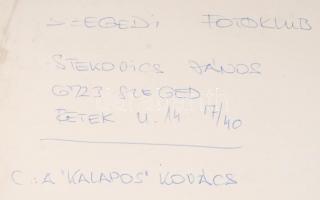 SZEGEDI FOTOKLUB
STEKOVICS JÁNOS
6723 SZEGED
ÉTEK U. 14 17/40
C: A "KALAPOS" KOVÁCS